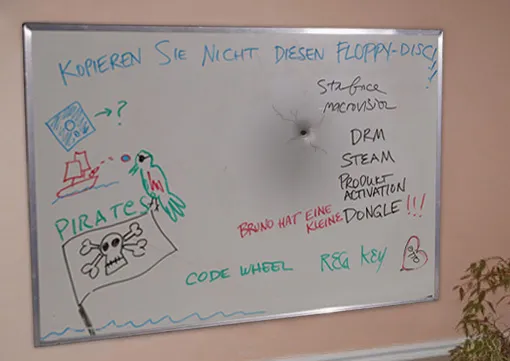 KOPIEREN SIE NICHT DIESEN FLOPPY-DISC!!
→?
Starforce
macrovision
DRM
STEAM
PRODUKT
ACTIVATION
BRUNO HAT EINE
KLEINE DONGLE!!!
PIRATES
CODE WHEEL
REG KEY